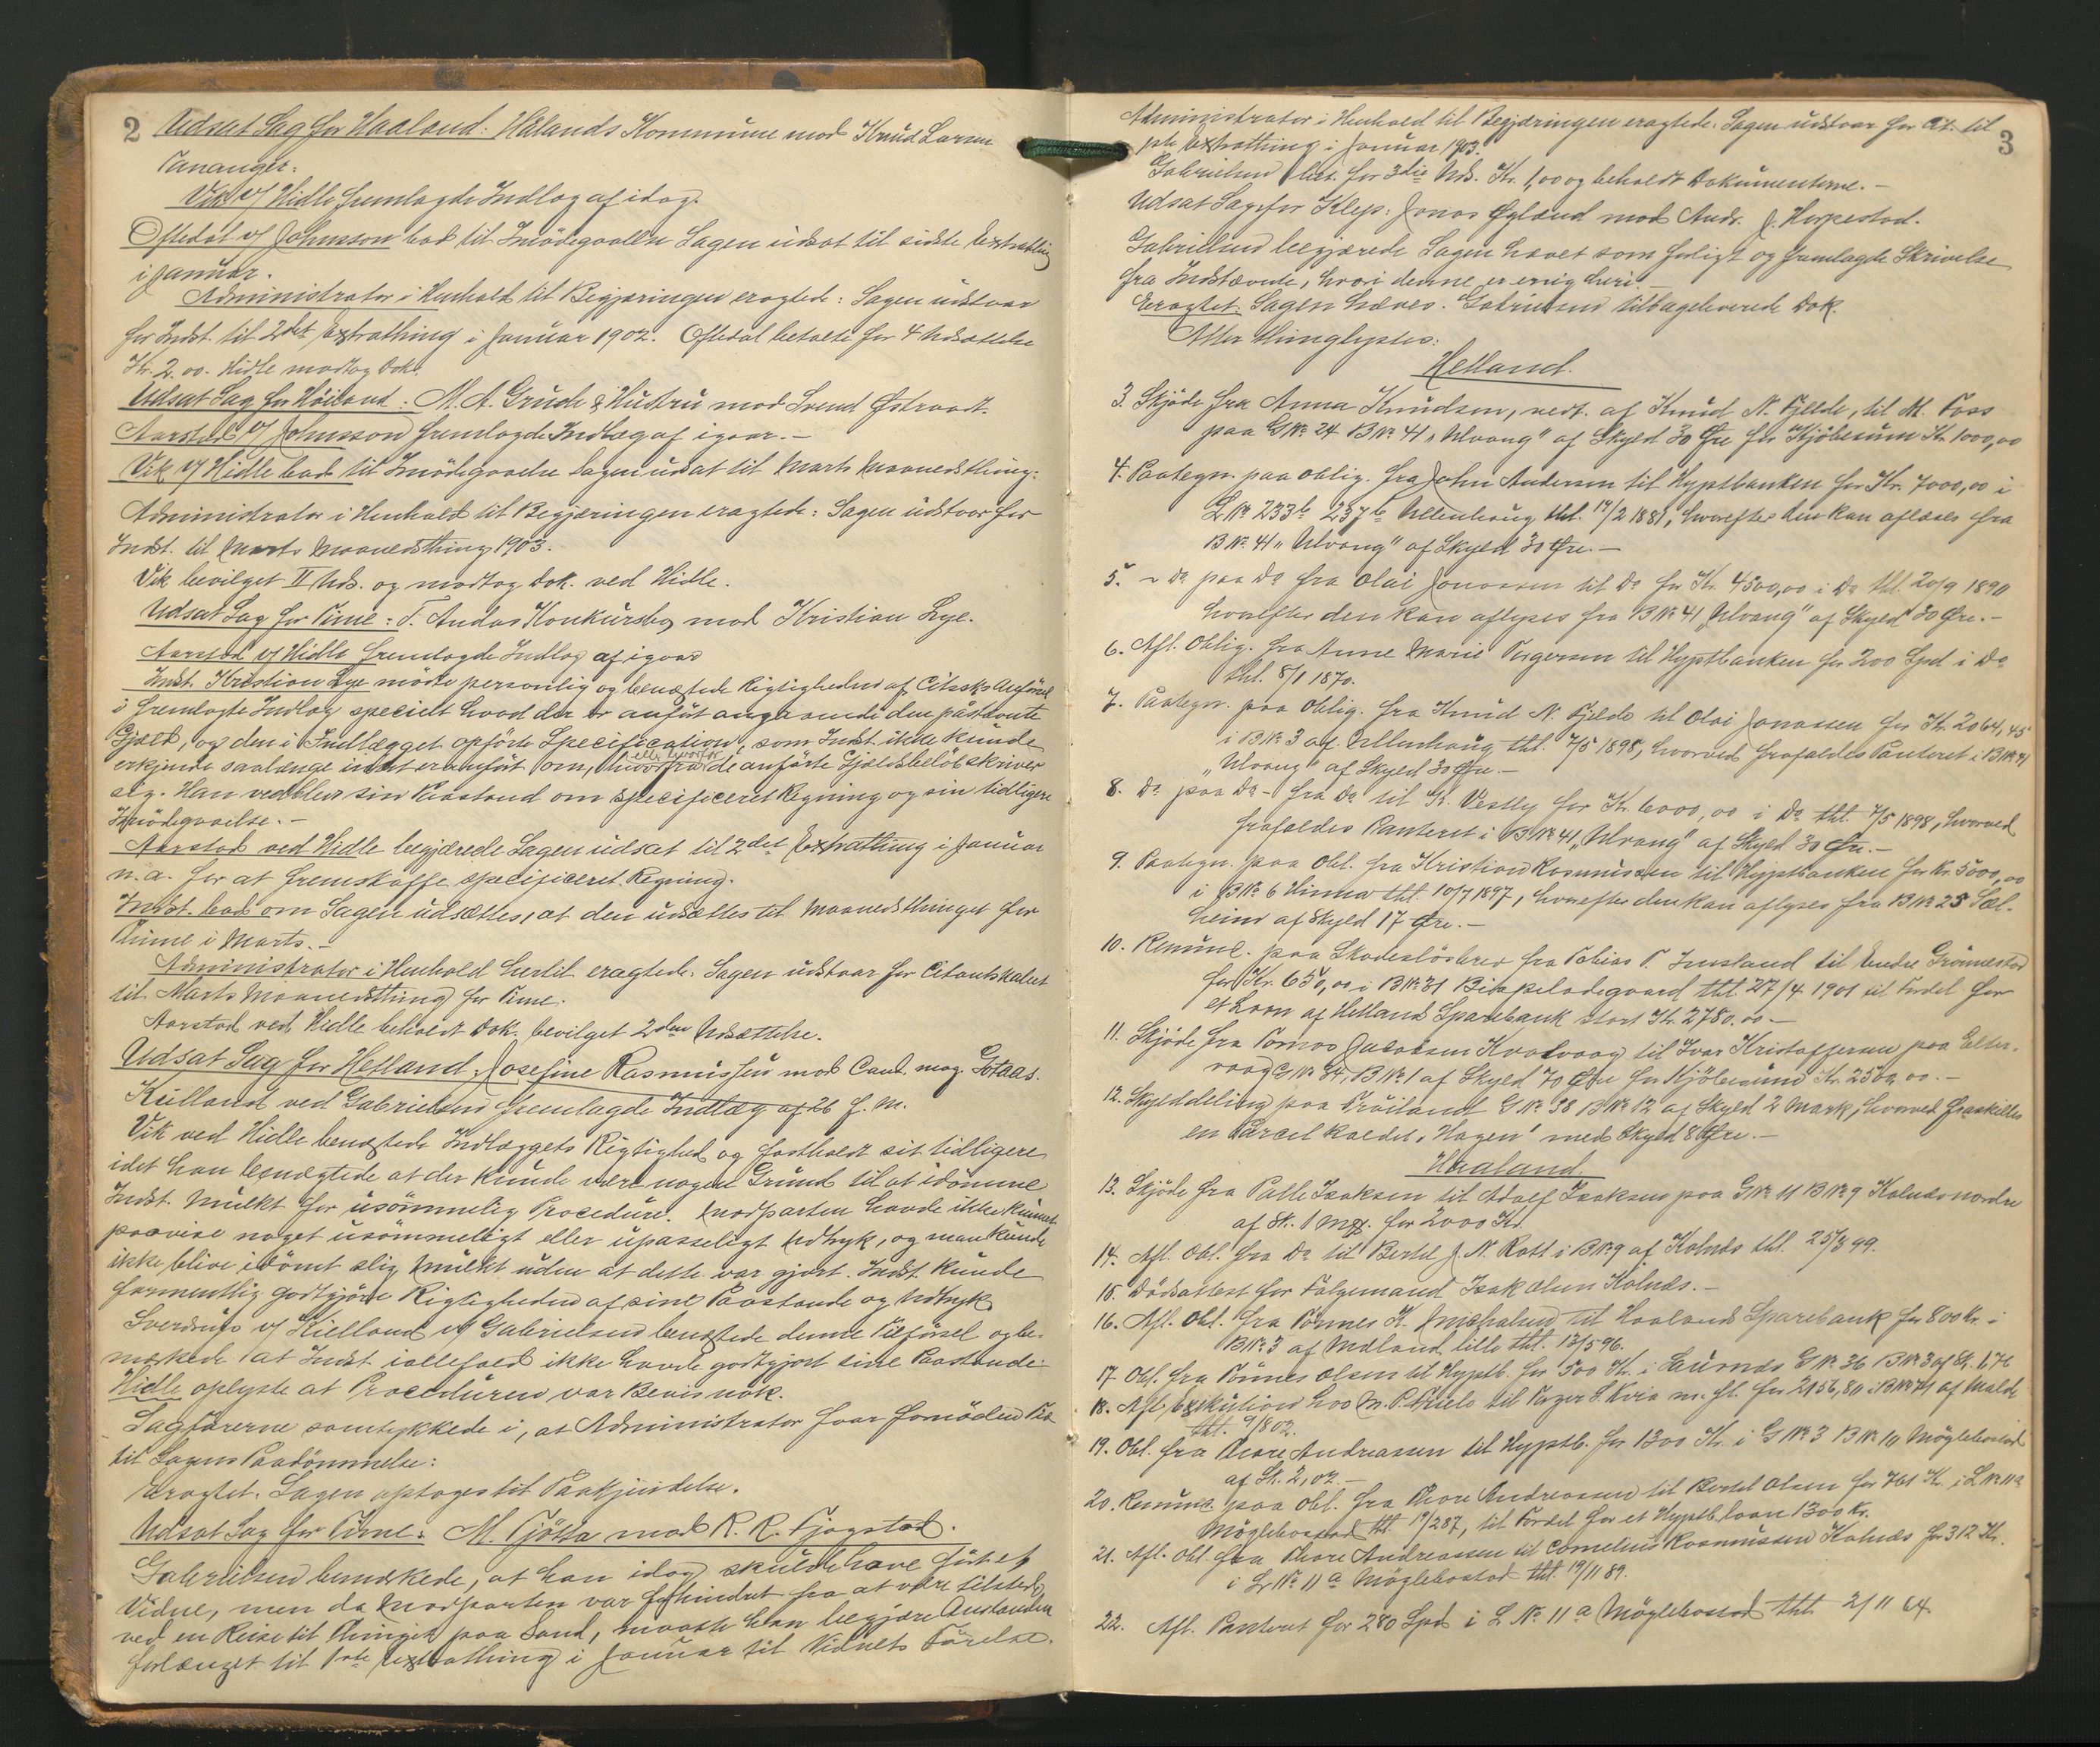 2 Udsat Sag for Haaland: Hålands Kommune mod Knud Larsen
Tananger.
Vik v/ Hidle fremlagde Indlæg af idag.
Oftedal v/ Johnsson bad til Imødegaaelse Sagen udsat til sidste Extrathing
i Januar.
Administrator i Henhold til Begjæringen eragtede: Sagen udstaar
for Indst. til 2det Extrathing i Januar 1902. Oftedal betalte for 4 Udsættelse
Kr. 2.00. Hidle modtog Dok.
Udsat Sag for Höiland: M. A. Grude & Hustru mod Svend Østraadt.
Aarstad v/ Johnsson fremlagde Indlæg af igaar.-
Vik v/ Hidle bad til Imödegaaelse Sagen udsat til Marts Maanedsthing.
Administrator i Henhold til Begjæringen eragtede: Sagen udstaar for
Indst. til Marts Maanedsthing 1903.
Vik bevilget II Uds. og modtog Dok. ved Hidle.
Udsat Sag for Time: T. Andas Konkursbo mod Kristian Lye.
Aarstad v/ Hidle fremlagde Indlæg af igaar
Indst. Kristian Lye mödte personlig og benægtede Rigtigheden af Citsks Anförsel
i fremlagte Indlæg specielt hvad der er anfört angaaende den påstævnte
Gjæld, og den i Indlægget opförte Specification, som Indst. ikke kunde
erkjende saalænge intet er anfört om, hvorfra eller hvorfor de anförte Gjældsbelöb skriver
sig. Han vedblev sin Paastand om specificeret Regning og sin tidligere
Imödegaaelse.-
Aarstad ved Hidle begjærede Sagen udsat til 2det Extrathing i Januar
n.a. for at fremskaffe specificeret Regning.
Indst. bad om Sagen udsættes, at den udsættes til Maanedsthinget for
Time i Marts.-
Administrator i Henhold hertil eragtede: Sagen udstaar for Citantskabet
til Marts Maanedsthing for Time.
Aarstad ved Hidle beholdt Dok. bevilget 2den Udsættelse.
Udsat Sag for Hetland: Josefine Rasmussen mod Cand. mag. Gotaas.
Kielland ved Gabrielsen fremlagde Indlæg af 26 f. M.
Vik ved Hidle benægtede Indlæggets Rigtighed og fastholdt sit tidligere
idet han benægtede at der kunde være nogen Grund til at idömme
Indst. Mulkt for usömmelig Procedure. Modparten havde ikke kunnet
paavise noget usömmeligt eller upasseligt Udtryk, og man kunde
ikke blive idömt slig Mulkt uden at dette var gjort. Indst. kunde
formentlig godtgjöre Rigtigheden af sine Paastande og Udtryk
Sverdrup v/ Kielland v/ Gabrielsen benægtede denne Tilförsel og be-
mærkede at Indst. iallefald ikke havde godtgjort sine Paastande
Hidle oplyste at Proceduren var Bevis nok.
Sagförerne samtykkede i, at Administrator faar fornöden Tid
til Sagens Paadömmelse:
Eragtet. Sagen optoges til Paakjendelse.
Udsat Sag for Time: M. Tjötta mod R. R. Fjogstad.
Gabrielsen bemærkede, at han idag skulde have fört et
Vidne, men da Modparten var forhindret fra at være tilstede
ved en Reise til Thinget paa Sand, maatte han begjære Anstanden
forlænget til 1ste Extrathing i Januar til Vidnets Förelse.
3
Administrator i Henhold til Begjæringen eragtede: Sagen udstaar for Cit. til
1ste Extrathing i Januar 1903.
Gabrielsen bet. for 3die Uds. Kr. 1,00 og beholdt Dokumenterne.-
Udsat Sag for Klep: Jonas Øgland mod Andr. J. Horpestad.
Gabrielsen begjærede Sagen hævet som forligt og fremlagde Skrivelse
fra Indstævnte, hvori denne er enig heri.-
Eragtet: Sagen hæves. Gabrielsen tilbageleverede Dok.
Atter thinglystes:
Hetland.
3. Skjöde fra Anna Knudsen, vedt. af Knud N. Fjelde, til M. Foss
paa G№ 24 B№ 41 "Ulvang" af Skyld 30 Øre for Kjöbesum Kr. 1000,00
4. Paategn. paa Oblig. fra John Andersen til Hyptbanken for Kr. 7000,00 i
L№ 233b 237b Ullenhaug thl. 19/2 1881, hvorefter den kan aflæses fra
B№ 41 "Ulvang" af Skyld 30 Øre.-
5. Do paa Do fra Olai Jonassen til Do for Kr. 4500,00 i Do thl. 20/9 1890
hvorefter den kan aflyses fra B№ 41 "Ulvang" af Skyld 30 Øre.-
6. Afl. Oblig. fra Anne Marie Torgersen til Hyptbanken for 200 Spd i Do
thl. 8/1 1870.
7. Paategn. paa Oblig. fra Knud N. Fjelde til Olai Jonassen for Kr. 2064,45
i B№ 3 af Ullenhaug thl. 7/5 1898, hvorved frafaldes Panteret i B№ 41
"Ulvang" af Skyld 30 Øre.-
8. Do paa Do- fra Do til K. Vestly for Kr. 6000,00 i Do thl. 7/5 1898, hvorved
frafaldes Panteret i B№ 41 "Ulvang" af Skyld 30 Øre.-
9. Paategn. paa Obl. fra Kristian Rasmussen til Hyptbanken for Kr. 5000,00
i B№ 6 Hinna thl. 10/7 1897, hvorefter den kan aflyses fra B№ 25 Sol-
heim af Skyld 17 Øre.-
10. Renunc. paa Skadeslösbrev fra Tobias T. Imsland til Endre Grönnestad
for Kr. 650,00 i B№ 31 Bispeladegaard thl. 27/4 1901 til Fordel for
et Laan af Hetlands Sparebank stort Kr. 2780.00-
11. Skjöde fra Tomas Jacobsen Kvalvaag til Ivar Kristoffersen paa Elter-
vaag G№ 84, B№ 1 af Skyld 70 Øre for Kjöbesum Kr. 2500,00.-
12. Skylddeling paa Fröiland G№ 38 B№ 12 af Skyld 2 Mark, hvorved fraskilles
en Parcel kaldet "Hagen" med Skyld 8 Øre.-
Haaland.
13. Skjöde fra Palle Isaksen til Adolf Isaksen paa G№ 11 B№ 9 Kolnæs nordre
af Sk. 1 Mrk. for 2000 Kr.
14. Afl. Obl. fra Do til Bertel J. N. Rott i B№ 9 af Kolnæs thl. 25/3 99.
15. Dödsattest for Folgemand Isak Olsen Kolnæs.-
16. Afl. Obl. fra Tönnes K. Michalsen til Haalands Sparebank for 800 Kr. i
B№ 3 af Mæland lille thl. 13/5 96.
17. Obl. fra Tönnes Olsen til Hyptb. for 500 Kr. i Særnes G№ 36 B№ 3 af Sk. 1,76
18. Afl. Exekution hos M. P. Thiele til Torger S. Kvia m. fl. for 2156,80 i B№ 74 af Malde
thl. 9/8 02.
19. Obl. fra Thore Andreassen til Hyptb. for 1300 Kr. i G№ 3 B№ 10 Möglebostad
af Sk. 2,02.-
20. Renunc. paa Obl. fra Thore Andreassen til Bertel Olsen for 761 Kr. i L№ 11a
Möglebostad thl. 19/2 87, til Fordel for et Hyptb.laan 1300 Kr.
21. Afl. Obl. fra Thore Andreassen til Cornelius Rasmussen Kolnæs for 312 Kr.
i L№ 11a Möglebostad thl. 19/11 89.
22. Afl. Panteret for 280 Spd i L№ 11a Möglebostad thl 2/11 64